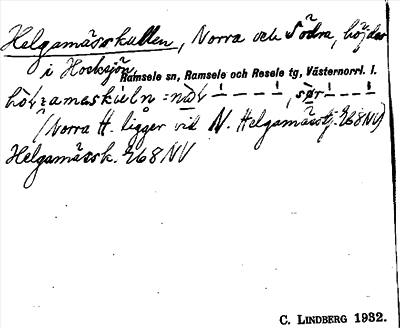 Helgamässkullen, Norra och Södra, höjder
i Hocksjön
Ramsele sn, Ramsele och Resele tg, Västernorrl. l.
(Norra H. ligger vid N. Helgamässtj. 68NV)
Helgamässk. 68NV
C. LINDBERG 1932.